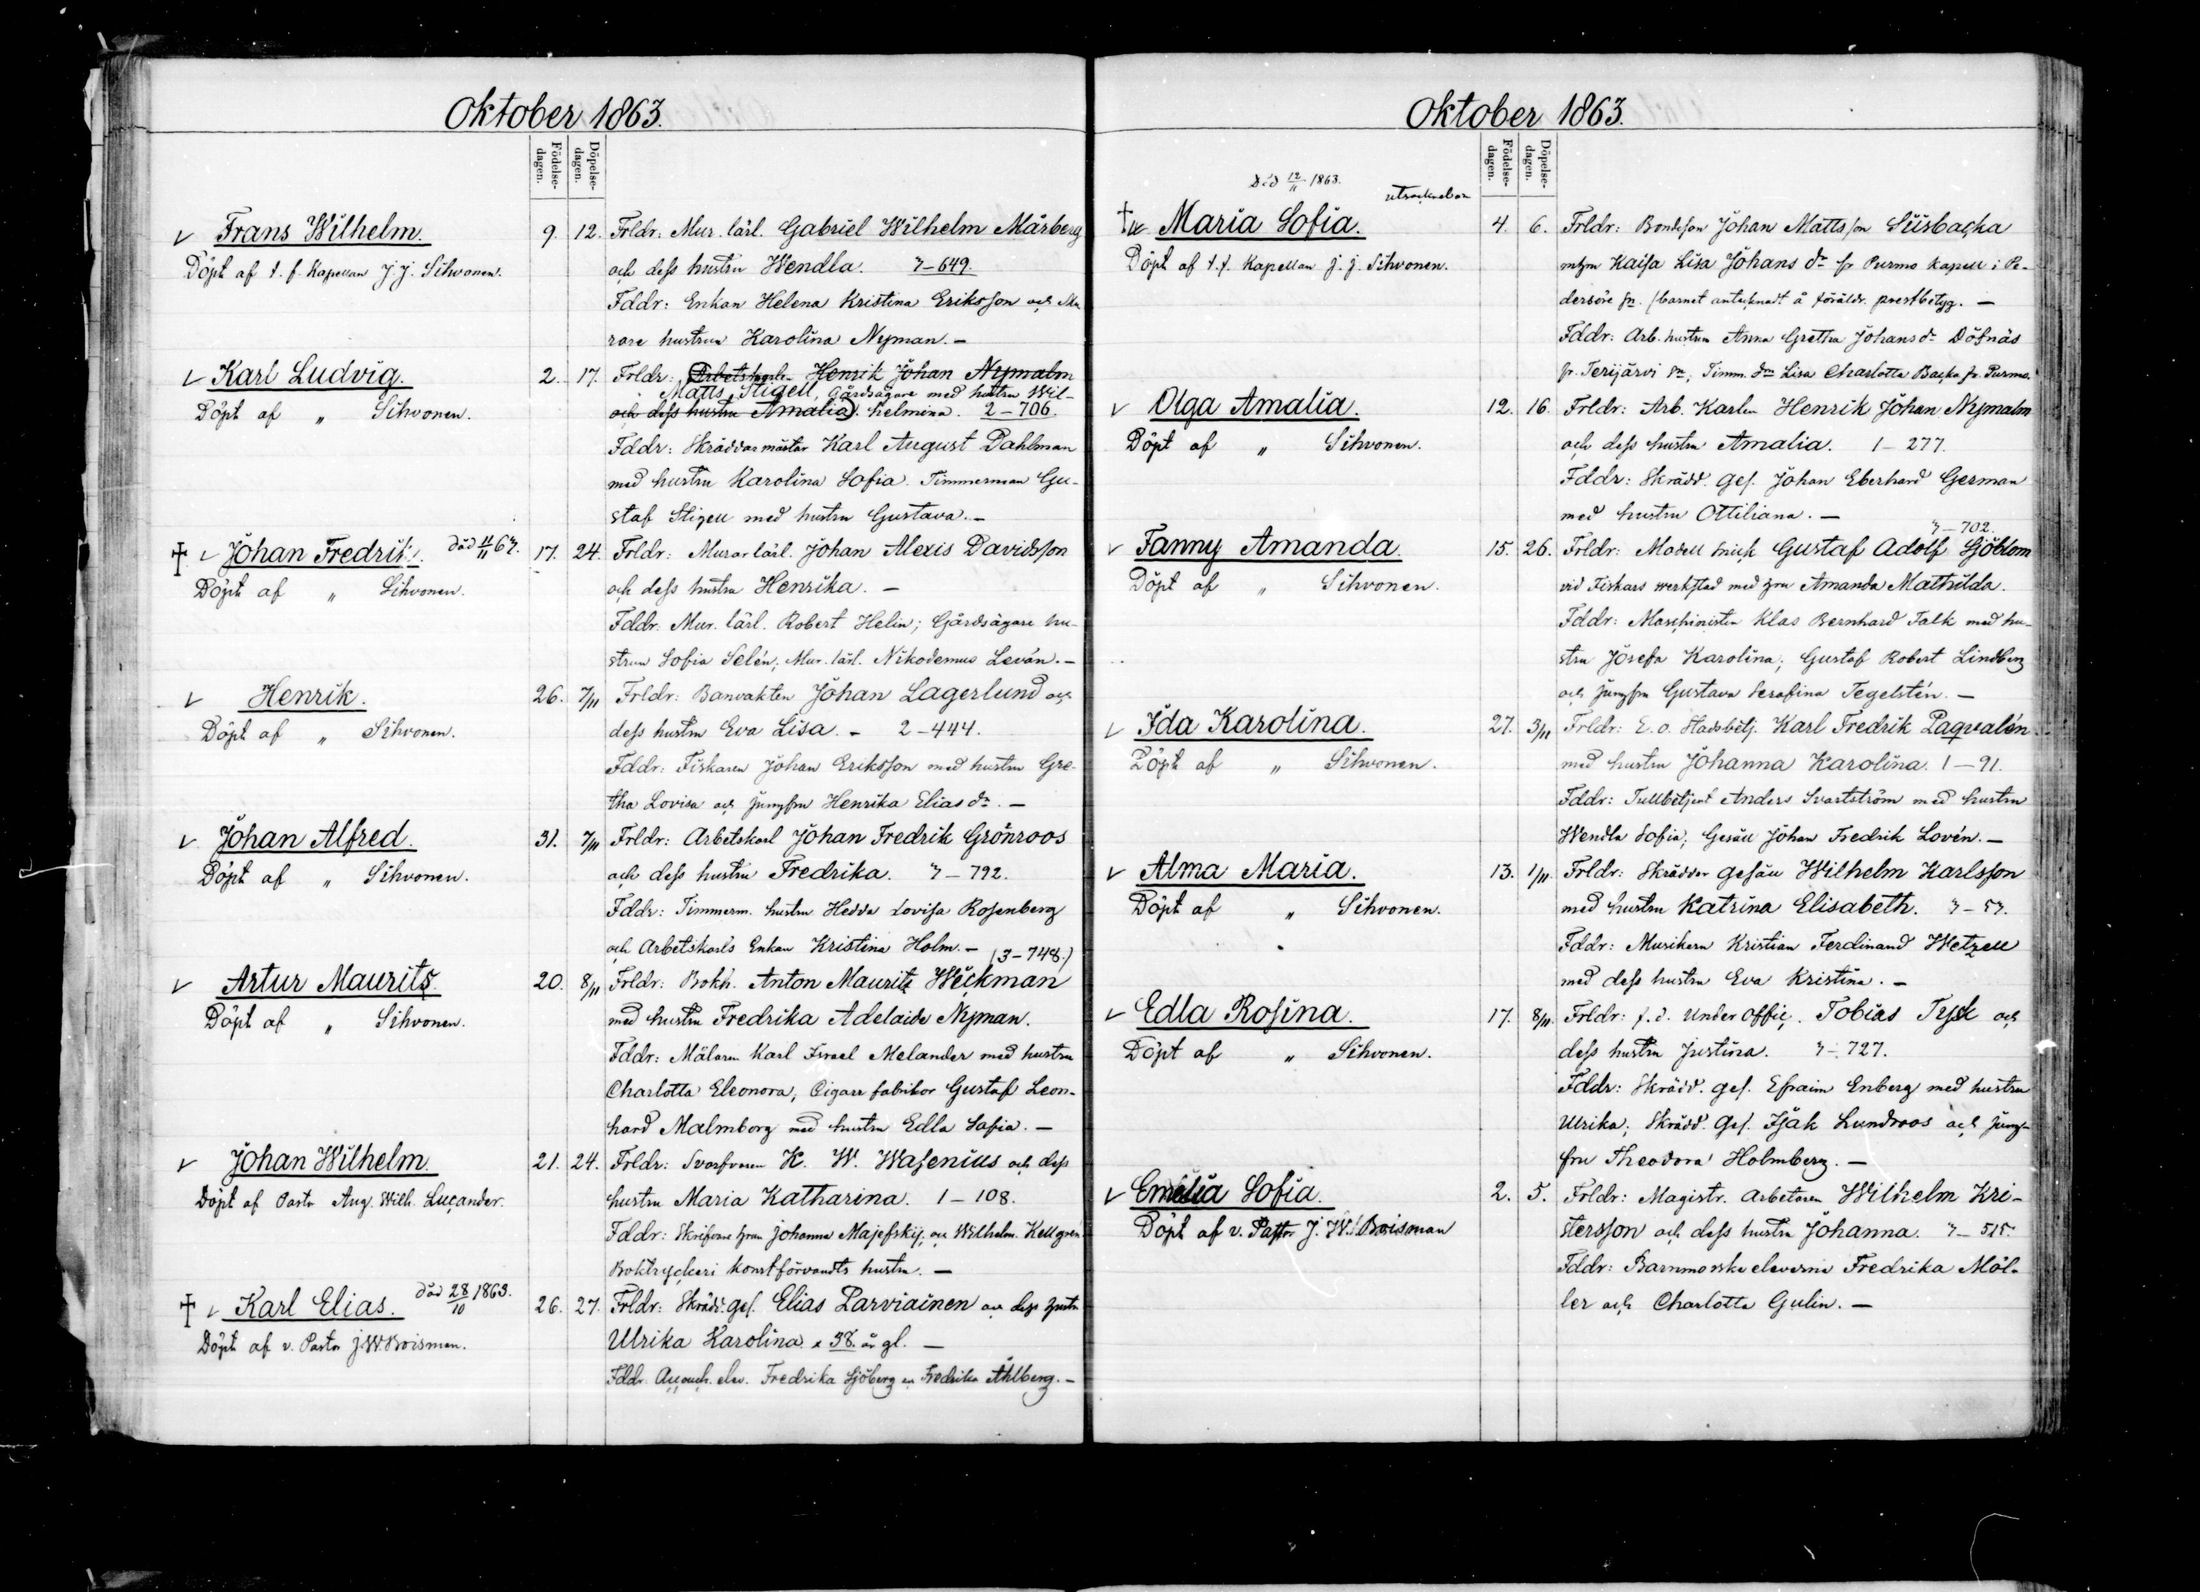 Oktober 1863.
Födelse-dagen.
Döpelse-dagen.
Frans Wilhelm.
Döpt af t. f. Kapellan J. J. Sihvonen.
9. 12. Frldr: Mur. lärl. Gabriel Wilhelm Mårberg
och dess hustru Wendla. 3-649.
Fddr: Enkan Helena Kristina Eriksson och Mu
rare hustrun Karolina Nyman. —
Karl Ludvig.
Döpt af „ Sihvonen.
2. 17. Frldr: Arbetskarln Henrik Johan Nymalm
Matts Stigell, Gårdsägare med hustru Wil-
och dess hustru Amalia helmina. 2-706.
Fddr: Skräddarmästar Karl August Dahlman
med hustru Karolina Sofia. Timmerman Gu-
staf Stigell med hustru Gustava. —
† Johan Fredrik. död 11/11 67.
Döpt af „ Sihvonen.
17. 24. Frldr: Murar lärl. Johan Alexis Davidsson
och dess hustru Henrika. —
Fddr: Mur. lärl. Robert Helin; Gårdsägare hu-
strun Sofia Selén; Mur. lärl. Nikodemus Levón. —
Henrik.
Döpt af „ Sihvonen.
26. 7/11 Frldr: Banvakten Johan Lagerlund och
dess hustru Eva Lisa. - 2-444.
Fddr: Fiskaren Johan Eriksson med hustru Gre-
tha Lovisa och jungfru Henrika Elias dr. —
Johan Alfred.
Döpt af „ Sihvonen.
31. 7/11 Frldr: Arbetskarl Johan Fredrik Grönroos
och dess hustru Fredrika. 3-792.
Fddr: Timmerm. hustru Hedda Lovisa Rosenberg
och Arbetskarls Enkan Kristina Holm. — (3-748.)
Artur Maurits.
Döpt af „ Sihvonen.
20. 8/11 Frldr: Bokh. Anton Maurits Wickman
med hustru Fredrika Adelaide Nyman.
Fddr: Målaren Karl Israel Melander med hustru
Charlotta Eleonora; Cigarr fabrikor Gustaf Leon-
hard Malmborg med hustru Edla Sofia. —
Johan Wilhelm.
Döpt af Pastor Aug. Wilh. Lucander.
21. 24. Frldr: Svarfvaren K. W. Wasenius och dess
hustru Maria Katharina. 1-108.
Fddr: Skrifvare frun Johanna Majefskij, och Wilhelm. Kellgren
Boktryckeri konstförvandts hustru. —
† Karl Elias. död 28/10 1863.
Döpt af v. Pastor J. W. Boisman.
26. 27. Frldr: Skrädd. ges. Elias Parviainen och dess hustru
Ulrika Karolina. 38. år gl. —
Fddr: Accouch. elev. Fredrika Sjöberg och Fredrika Åhlberg. —
Oktober 1863.
Födelse-dagen.
Döpelse-dagen.
Död 12/11 1863.
† Maria Sofia.
Döpt af t. f. Kapellan J. J. Sihvonen.
4. 6. Frldr: Bondeson Johan Mattsson Siisbacka
Kajsa Lisa Johans dr fr Purmo kapell i Pe-
dersöre sn. (barnet antecknadt å föräldr. prestbetyg. —
Fddr: Arb. hustrun Anna Gretha Johansdr Döfnäs
fr. Terijärvi sn; Timm. Lisa Charlotta Backa fr. Purmo.
Olga Amalia.
Döpt af „ Sihvonen.
12. 16. Frldr: Arb. Karlen Henrik Johan Nymalm
och dess hustru Amalia. 1-277.
Fddr: Skrädd. ges. Johan Eberhard German
med hustru Ottiliana. —
3-702.
Fanny Amanda.
Döpt af „ Sihvonen.
15. 26. Frldr: Modell snick Gustaf Adolf Sjöblom
vid Fiskars werkstad med hru Amanda Mathilda.
Fddr: Maschinisten Klas Bernhard Falk med hu-
stru Josefa Karolina; Gustaf Robert Lindberg
och jungfru Gustava Serafina Tegelstén. —
Ida Karolina.
Döpt af „ Sihvonen.
27. 3/11 Frldr: E. o. Stadsbetj. Karl Fredrik Paqvalén
med hustru Johanna Karolina. 1-91.
Fddr: Tullbetjent Anders Svartström med hustru
Wendla Sofia; Gesäll Johan Fredrik Lovén. —
Alma Maria.
Döpt af „ Sihvonen.
13. 1/11 Frldr: Skräddar gesäll Wilhelm Karlsson
med hustru Katrina Elisabeth. 3-57.
Fddr: Musikern Kristian Ferdinand Wetzell
med dess hustru Eva Kristina. —
Edla Rosina.
Döpt af „ Sihvonen.
17. 8/11 Frldr: f. d. Under Offic. Tobias Tysk och
dess hustru Justina. 3-727.
Fddr: Skrädd. ges. Efraim Enberg med hustru
Ulrika; Skrädd. Ges. Isak Lundroos och jung-
fru Theodora Holmberg. —
Emelia Sofia.
Döpt af v. Pastor J. W. Boisman
2. 5. Frldr: Magistr. Arbetaren Wilhelm Kri-
stersson och dess hustru Johanna. 3-515.
Fddr: Barnmorske eleverne Fredrika Möl-
ler och Charlotta Gulin. —